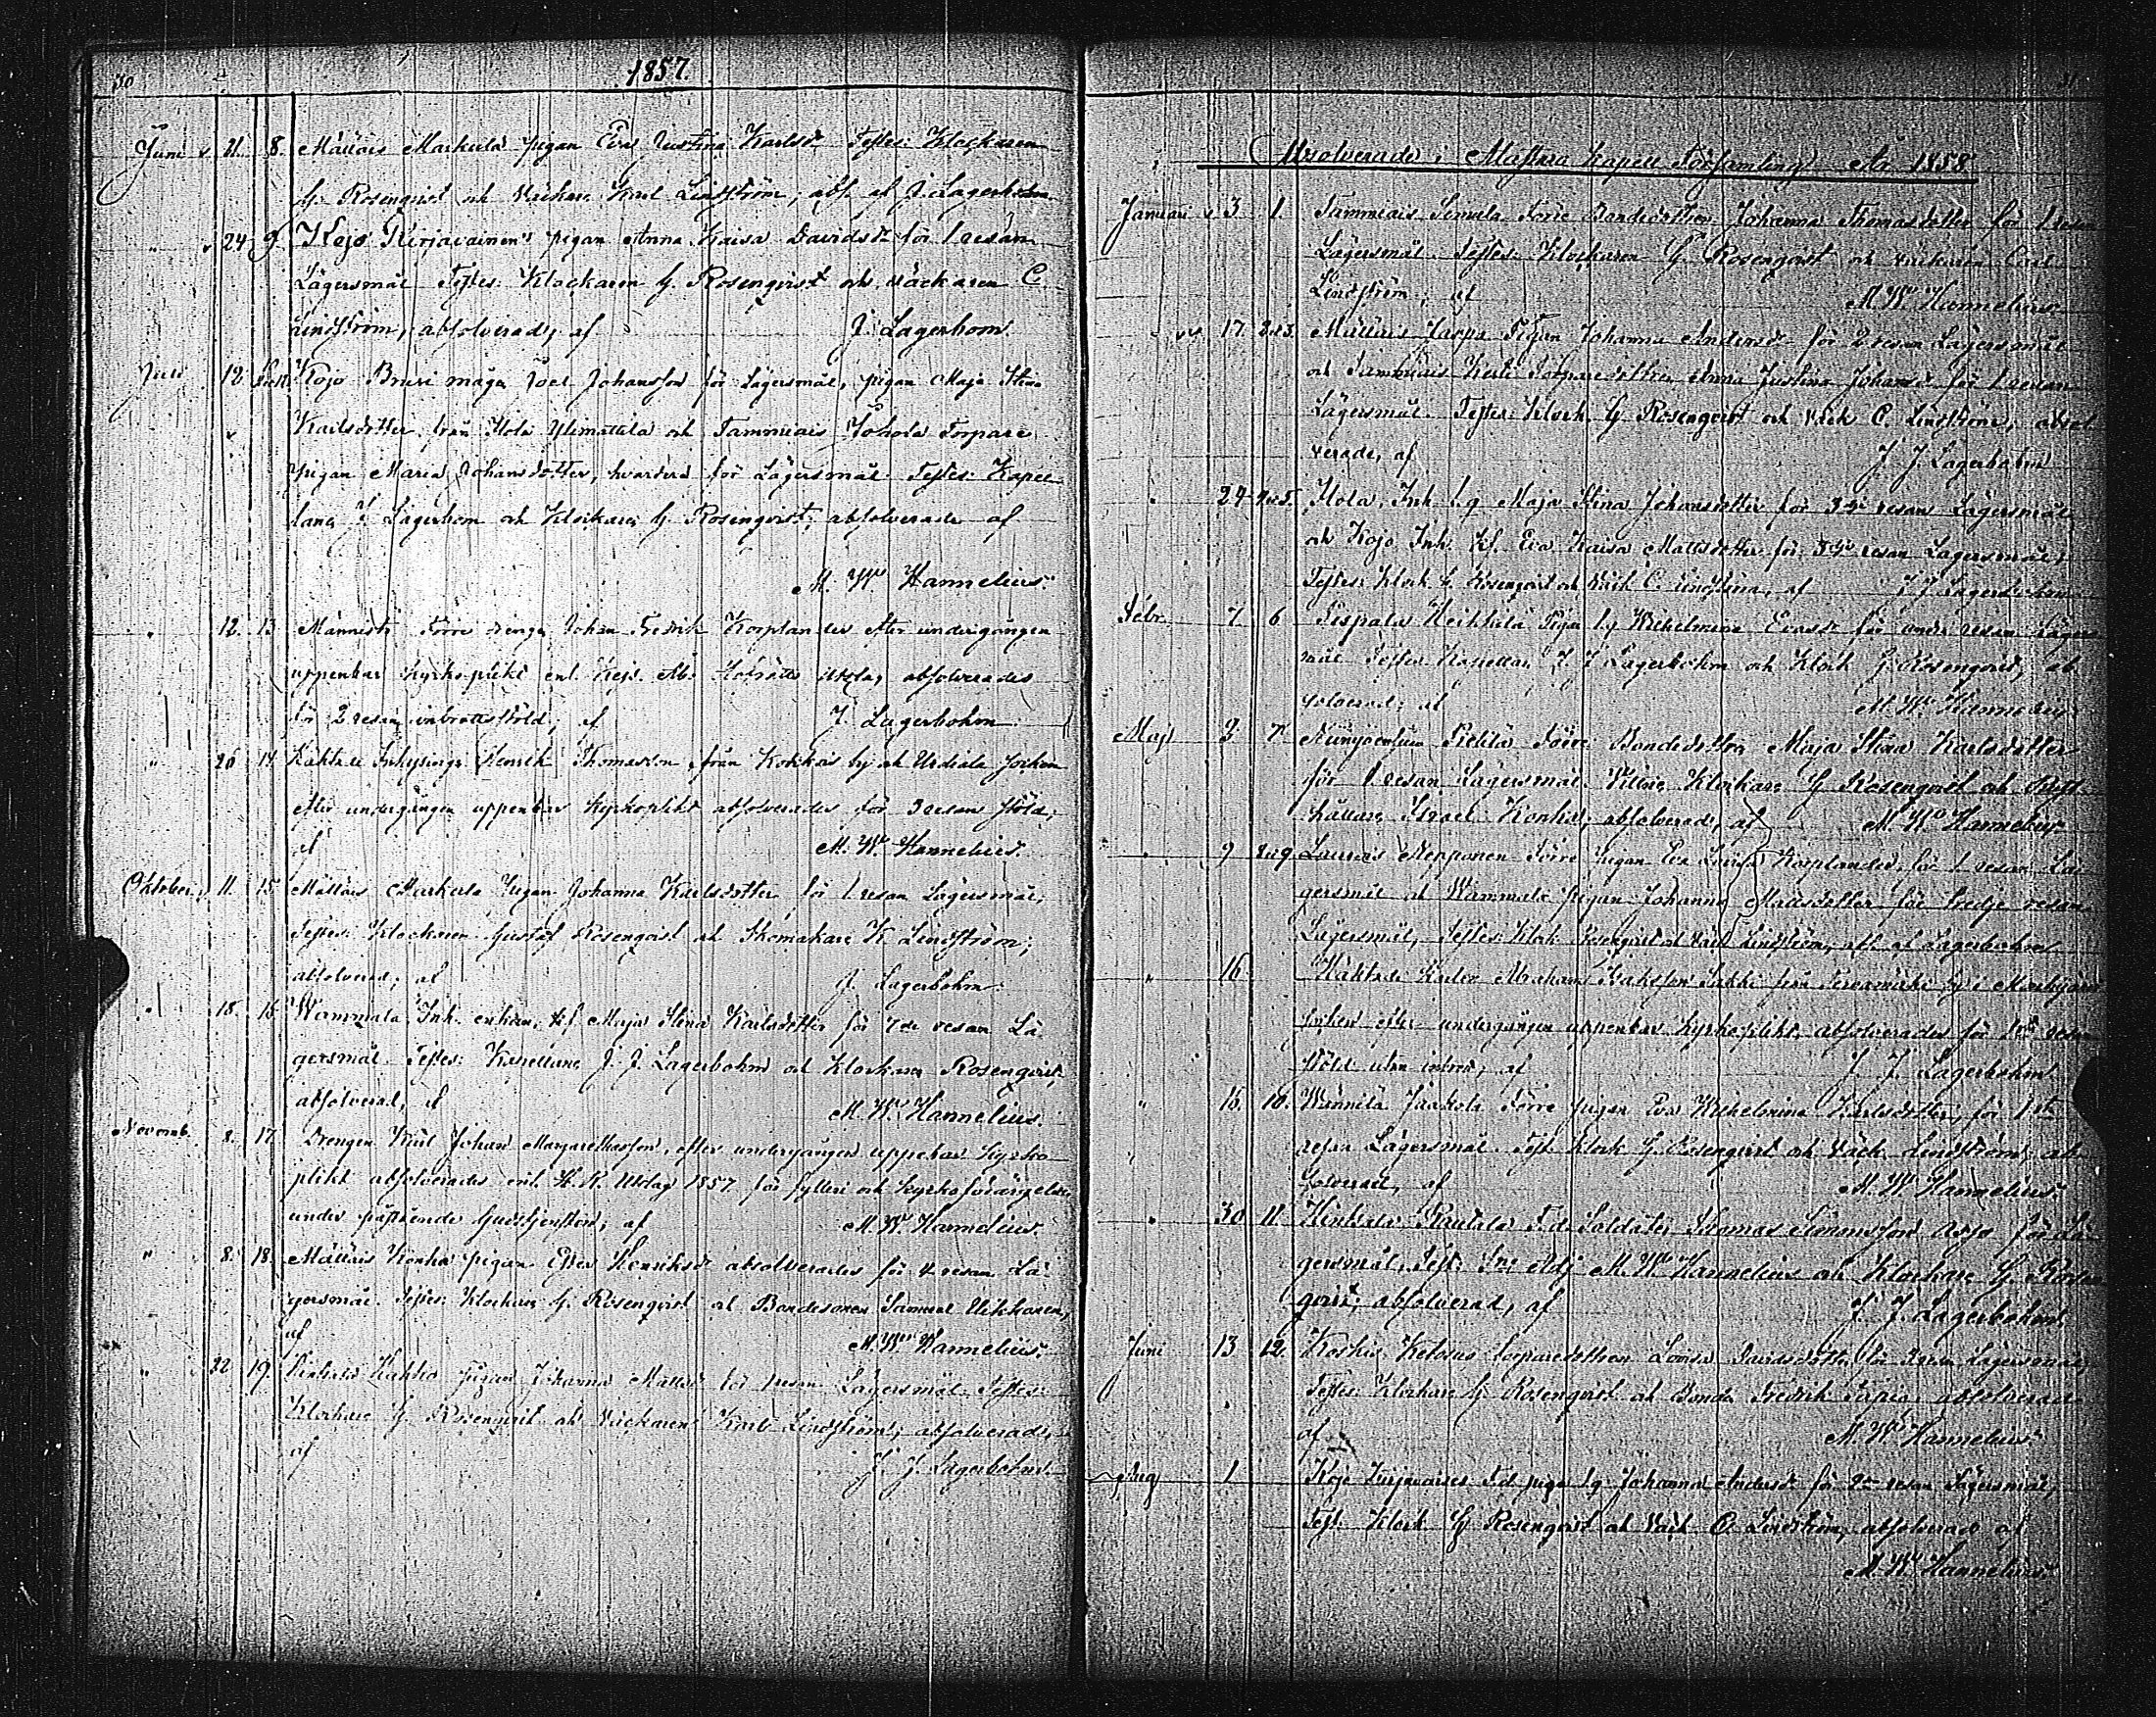 30
1857.
Juni 21. 8. Mällais Markula pigan Eva Justina Karlsdr Testes: Klockaren
G. Rosenqvist och Väckare Karl Lindström, abs. af J. Lagerbohm
" 24 9 Kojo Kirjavainen's pigan Anna Kaisa Davidsdr för 1 resan
Lägersmål Testes: Klockaren G. Rosenqvist och väckaren C.
Lindström, absolverad, af J. Lagerbom.
Juli 12 Kojo Bruri måge Joel Johansson för Lägersmål, pigan Maja Stina
Karlsdotter från Hola Ylimattila och Tammiais Torpare
pigan Maria Johansdotter, hvardera för Lägersmål. Testes: Kapel-
lane J Lagerbom och Klockare G. Rosenqvist, absolverade af
M. W. Hannelius.
" 12. 13 Männistö Förre drenge Johan Fredrik Korplander efter undergången
uppenbar kyrkoplikt enl. Kejs. Åbo Hofrätts Utslag absolverades
för 2 resan inbrottsstöld, af J. Lagerbohm
" 26 14 Häktade Inhysinge Henrik Thomasson från Korkkais by och Urdiala Socken
efter undergången uppenbar kyrkoplikt absolverades för 3 resan stöld,
af M. W. Hannelius.
Oktober 11. 15 Mällais Markula Pigan Johanna Karlsdotter för 1 resan Lägersmål,
Testes: Klockaren Gustaf Rosenqvist och Skomakare K. Lindström;
absolverad, af J. Lagerbohm
" 18. 16 Wammala Inh. enkan, Maja Stina Karlsdotter för 7de resan Lä-
gersmål. Testes: Kapellane J. J. Lagerbohm och Klockare Rosenqvist,
absolverad, af M. W. Hannelius.
Novemb. 8. 17 Drengen Karl Johan Margarethasson, efter undergången uppenbar Kyrko-
plikt absolverades enl. H. R. Utslag 1857 för fylleri och kyrkoförargelse
under påstående Gudstjensten, af M. W. Hannelius.
" 8. 18. Mällais Konho pigan Ester Henriksdr absolverades för 4 resan Lä-
gersmål. Testes: Klockare G. Rosenqvist och Bondesonen Samuel
af M. W. Hannelius.
" 22 19. Kahko pigan Johanna Mattsdr för resan Lägersmål. Testes:
Klockare G. Rosenqvist och Väckaren Karl Lindström, absolverad,
af J. J. Lagerbohm.
Absolverade i Kapell Församling År 1858.
Januari 3 1. Tammiais Simula Förre Bondedotter Johanna Thomasdotter för 1 resan
Lägersmål. Testes: Klockaren G. Rosenqvist och väckaren Carl
Lindström, af M. W. Hannelius.
" 17. 2 o 3. Mällais Jaspa Pigan Johanna Andersdr för 2 resan Lägersmål
och Tammiais Torparedottren Anna Justina Johansdr för 1 resan
Lägersmål. Testes: Klock. G. Rosenqvist och Väck C. Lindström, absol-
verade, af J. J. Lagerbohm
" 24 4 o 5. Hola Inh. Maja Stina Johansdotter för 3dje resan Lägersmål
och Kojo Inh. Eva Kaisa Mattsdotter för 3dje resan Lägersmål,
Testes: Klock G. Rosenqvist och Väck C. Lindström, af J J Lagerbohm
Febr. 7. 6 Heikkilä Pigan Wilhelmina för andra resan Lägers-
mål Testes: Kapellan J. J Lagerbohm och Klock G. Rosenqvist, ab-
solverad, af M. W. Hannelius
Maji 2 7 Förre Bondedottren Maja Stina Karlsdotter
för 1 resan Lägersmål. Klockare G Rosenqvist och
hållare Israel Konkel, absolverad, af M. W. Hannelius
" 9 8 o 9 Laurais Nepponen Förre pigan Eva Lovisa Korplander, för 1 resan Lä-
gersmål och Wammala pigan Johanna Mattsdotter för tredje resan
Lägersmål, Testes: Klock Rosenqvist och Väck Lindström, abs. af Lagerbohm
" 16 Häktade Karlen Abraham Isaksson från by i
socken efter undergången uppenbar kyrkoplikt, absolverades för resan
stöld utan inbrott, af J. J. Lagerbohm
" 16. 10. Jaakola Förre pigan Eva Wilhelmina Karlsdotter, för 1sta
resan Lägersmål. Test. Klock G. Rosenqvist och Väck Lindström, ab-
solverad, af M. W. Hannelius.
" 30 11. Rautala F.d. Soldaten Thomas Simonsson för Lä-
gersmål, Test: Adj M. W. Hannelius och Klockare G. Rosen-
qvist, absolverad, af J. J. Lagerbohm
Juni 13 12. Ketosus torparedottren Lovisa Davidsdotter för resan Lägersmål,
Testes Klockare G. Rosenqvist och Bonde Fredrik absolverad
af M. W. Hannelius.
Aug 1 Kojo F.d. piga Johanna Andersdr för 2a resan Lägersmål,
Test. Klock G Rosenqvist och Väck C. Lindström, absolverad af
M. W. Hannelius.